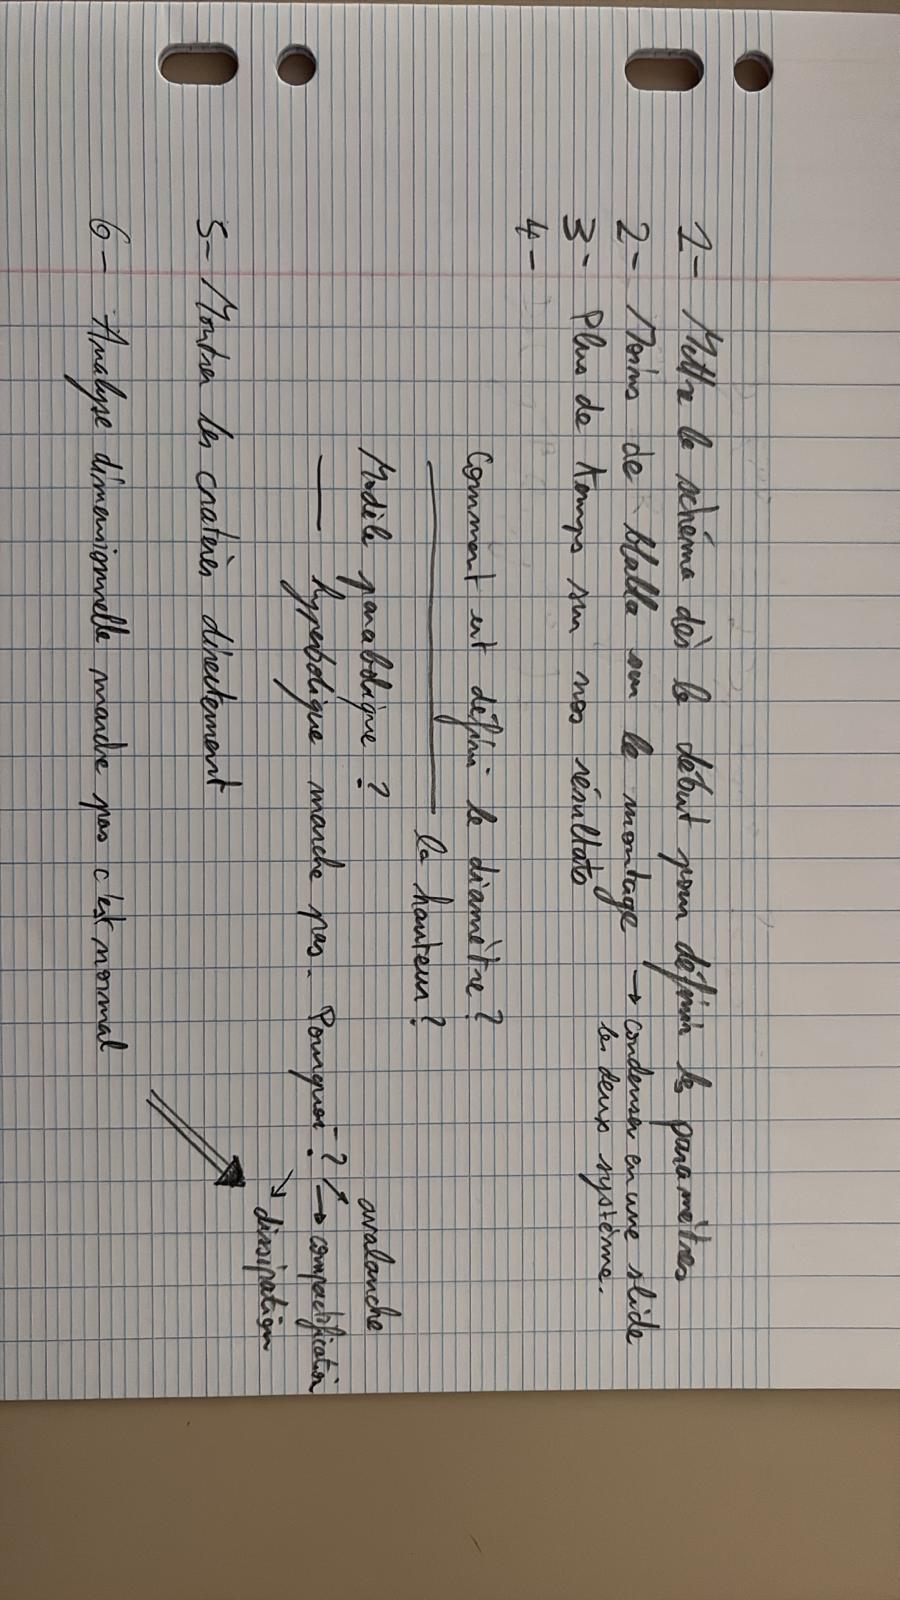 1- Mettre le schéma dès le début pour définir les paramètres
2- Moins de blabla sur le montage → condenser en une slide
les deux système.
3- Plus de temps sur nos résultats
4-
Comment est défini le diamètre ?
——— la hauteur ?
Modèle parabolique ?
— hyperbolique marche pas. Pourquoi ?
avalanche
→ compactification
dissipation
5- Montrer les cratères directement
6- Analyse dimensionnelle marche pas c'est normal